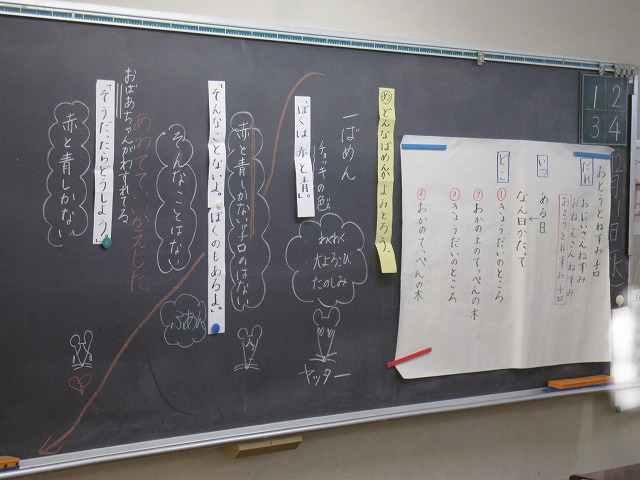 おとうとねずみ チロ
だれ
おにいさんねずみ
おねえさんねずみ
おとうとねずみ チロ
いつ
ある日
なん日かたって
どこ
①きょうだいのところ
②おかの上のてっぺんの木
③きょうだいのところ
④おかのてっぺんの木
1 2
3 4
め どんなばめんかよみとろう。
一ばめん
チョッキの色
「ぼくは 赤と青」。
わくわく
大よろこび
たのしみ
ヤッター
赤と青しかない チロのはない
そんなことないよ。ぼくのもあるよ」。
そんなことはない
ふあん
あわてていいかえした。
おばあちゃんがわすれてる
「そうだったらどうしよう。」
赤と青しかない